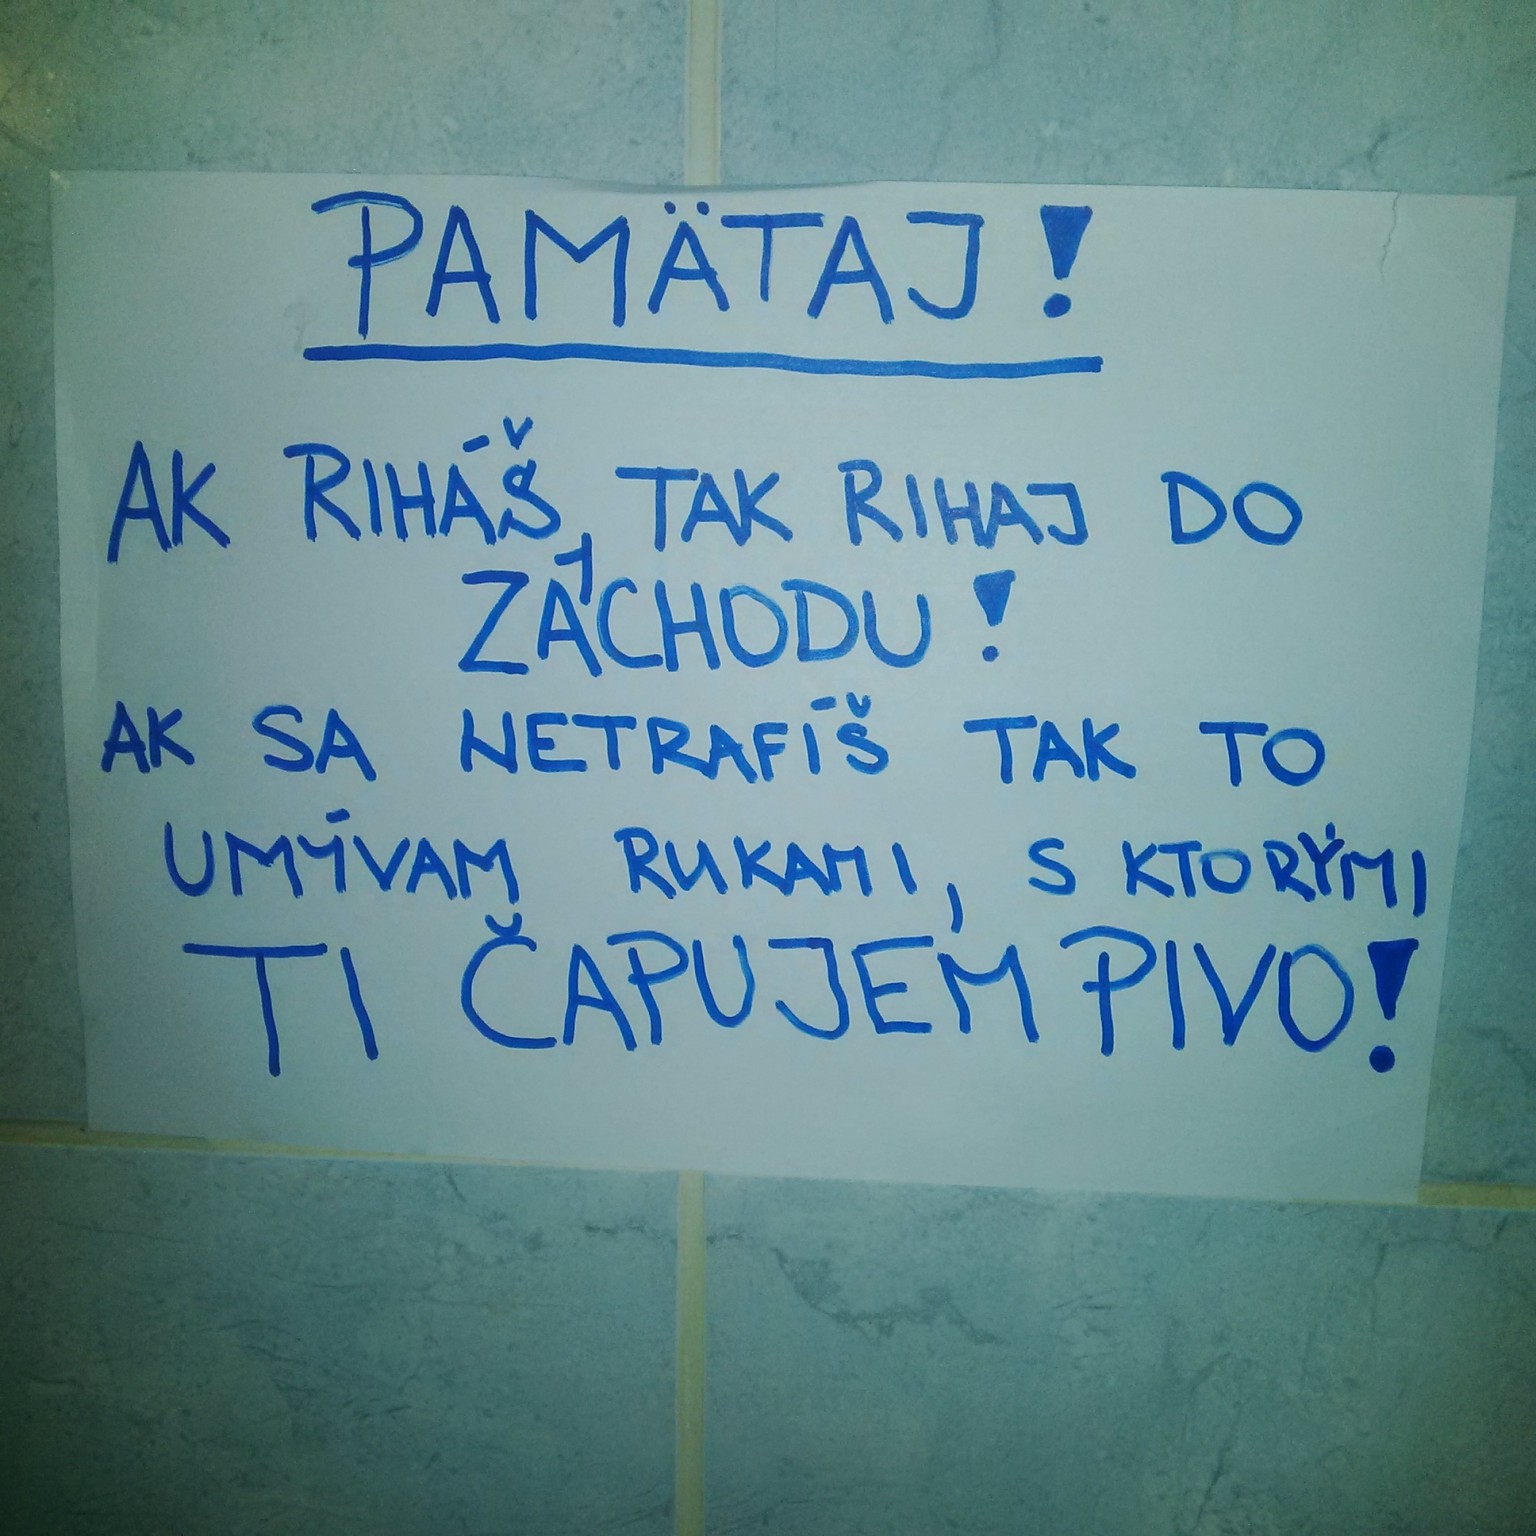 PAMÄTAJ!
AK RIHÁŠ, TAK RIHAJ DO
ZÁCHODU!
AK SA NETRAFÍŠ TAK TO
UMÝVAM RUKAMI, S KTORÝMI
TI ČAPUJEM PIVO!